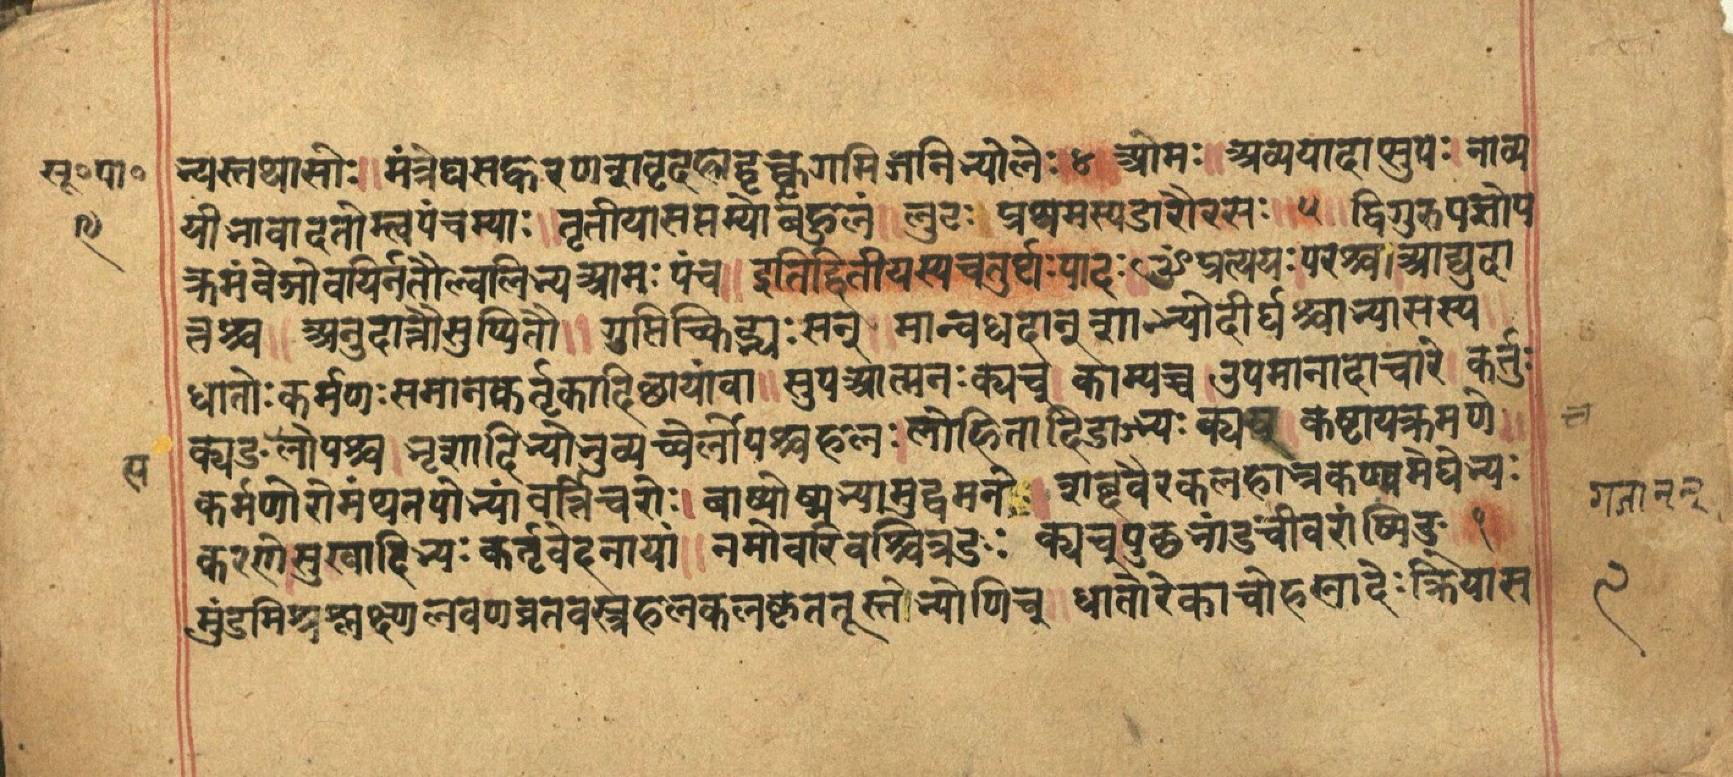 सू॰पा॰
९
न्यस्तथासोः॥ मंत्रेघसह्वरणशवृदहाद्वृच्कृगमिजनिभ्योलेः ४ आमः॥ अव्ययादाप्सुपः॥ नाव्य
यीभावादतोम्त्वपंचम्याः॥ तृतीयासप्तम्योर्बहुलं॥ लुटः प्रथमस्यडारौरसः॥ ५॥ द्विगुरुपज्ञोप
क्रमंवेञोवयिर्नतौल्वलिभ्यआमः पंच॥ इतिद्वितीयस्यचतुर्थः पादः ॐ प्रत्ययः परश्च। आद्युदा
त्तश्च॥ अनुदात्तौसुप्पितौ॥ गुप्तिज्किद्भ्यः सन्॥ मान्बधदान्शान्भ्योदीर्घश्चाभ्यासस्य॥
धातोः कर्मणः समानकर्तृकादिछायांवा॥ सुपआत्मनः क्यच्। काम्यच्च। उपमानादाचारे। कर्तुः
क्यङ्लोपश्च। भृशादिभ्योभुव्यच्वेर्लोपश्चहलः। लोहितादिडाज्भ्यः क्यष्। कष्टायक्रमणे॥
च
स
कर्मणोरोमंथतपोभ्यांवर्त्तिचरोः। बाष्पोष्मभ्यामुद्वमने। शब्दवैरकलहाभ्रकण्वमेघेभ्यः
करणे। सुखादिभ्यः कर्तृवेदनायां॥ नमोवरिवश्चित्रङः क्यच्। पुछभांडचीवरांण्णिङ् १
गजानन्
मुंडमिश्रश्लक्ष्णलवणव्रतवस्त्रहलकलकृततूस्तेभ्योणिच्॥ धातोरेकाचोहलादेः क्रियास
९